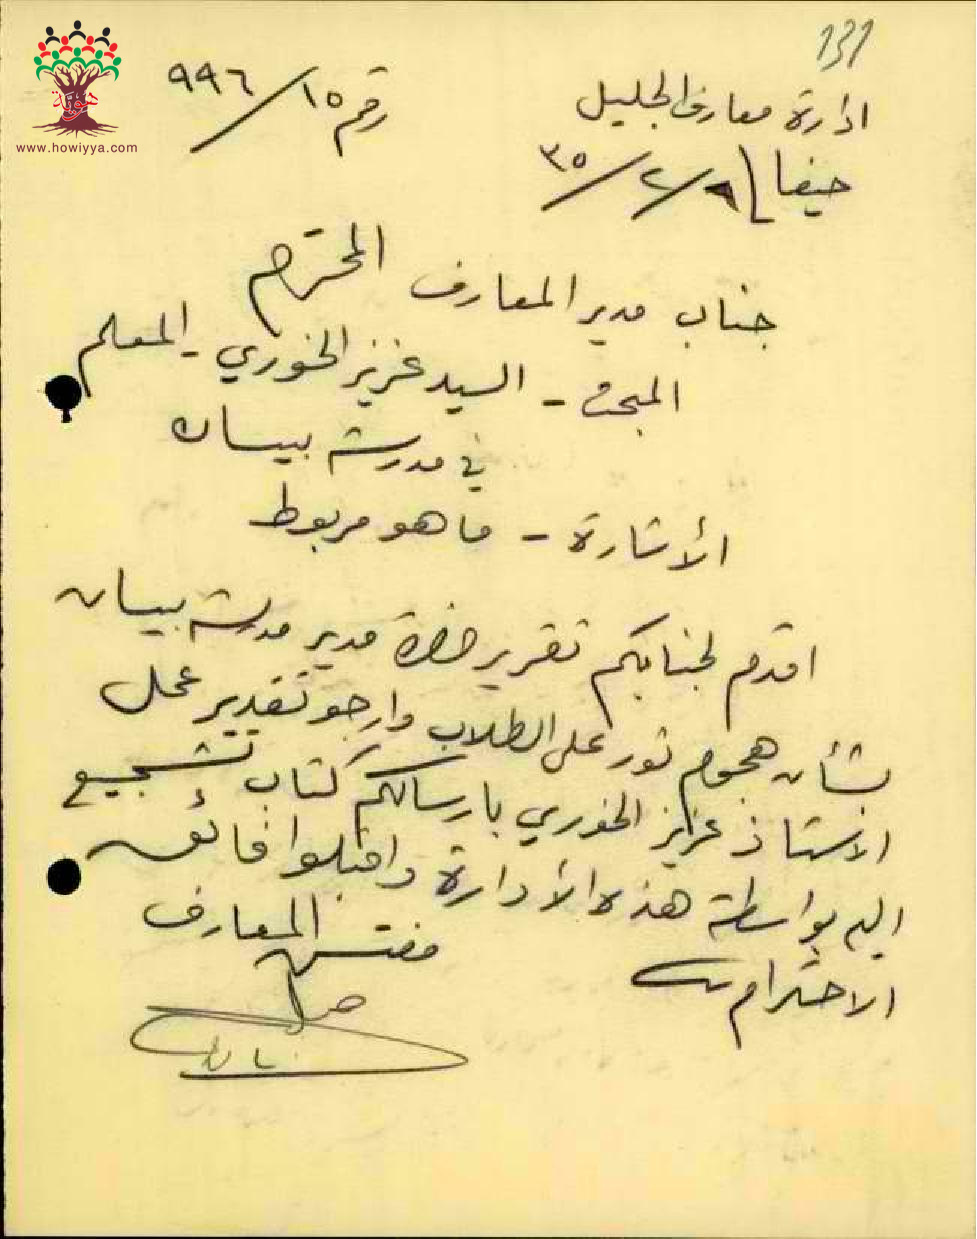 131
ادارة معارف الجليل
رقم ١٥/٩٩٦
حيفا ٩/٢/٣٥
هوية
www.howiyya.com
جناب مدير المعارف المحترم
المبحث - السيد عزيز الخوري - المعلم
في مدرسة بيسان
الأشارة - ما هو مربوط
اقدم لجنابكم تقرير حضرة مدير مدرسة بيسان
بشأن هجوم ثور على الطلاب وارجو تقدير عمل
الاستاذ عزيز الخوري بارسالكم كتاب تشجيع
اليه بواسطة هذه الأدارة واقبلوا فائق
الاحترام
مفتش المعارف